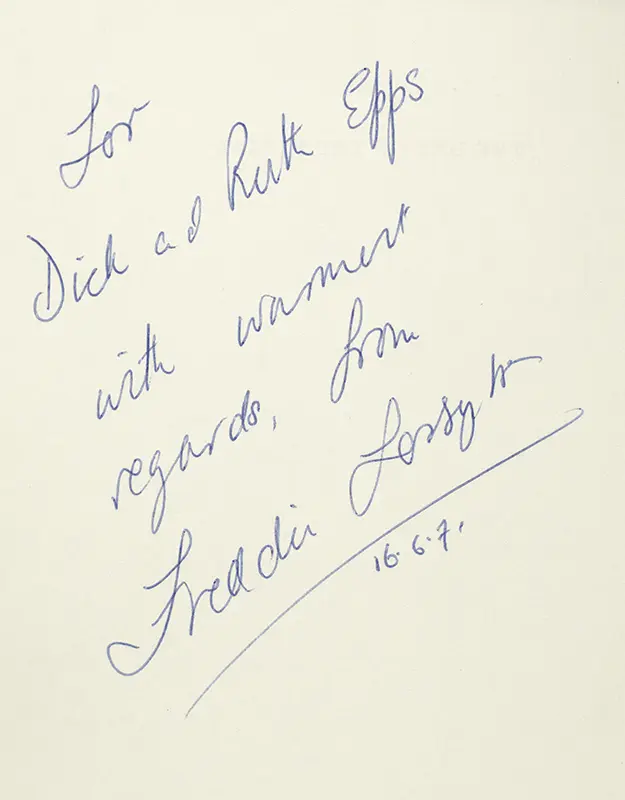 For
Dick and Ruth Epps
with warmest
regards, from
Freddie Forsyth
16.6.71